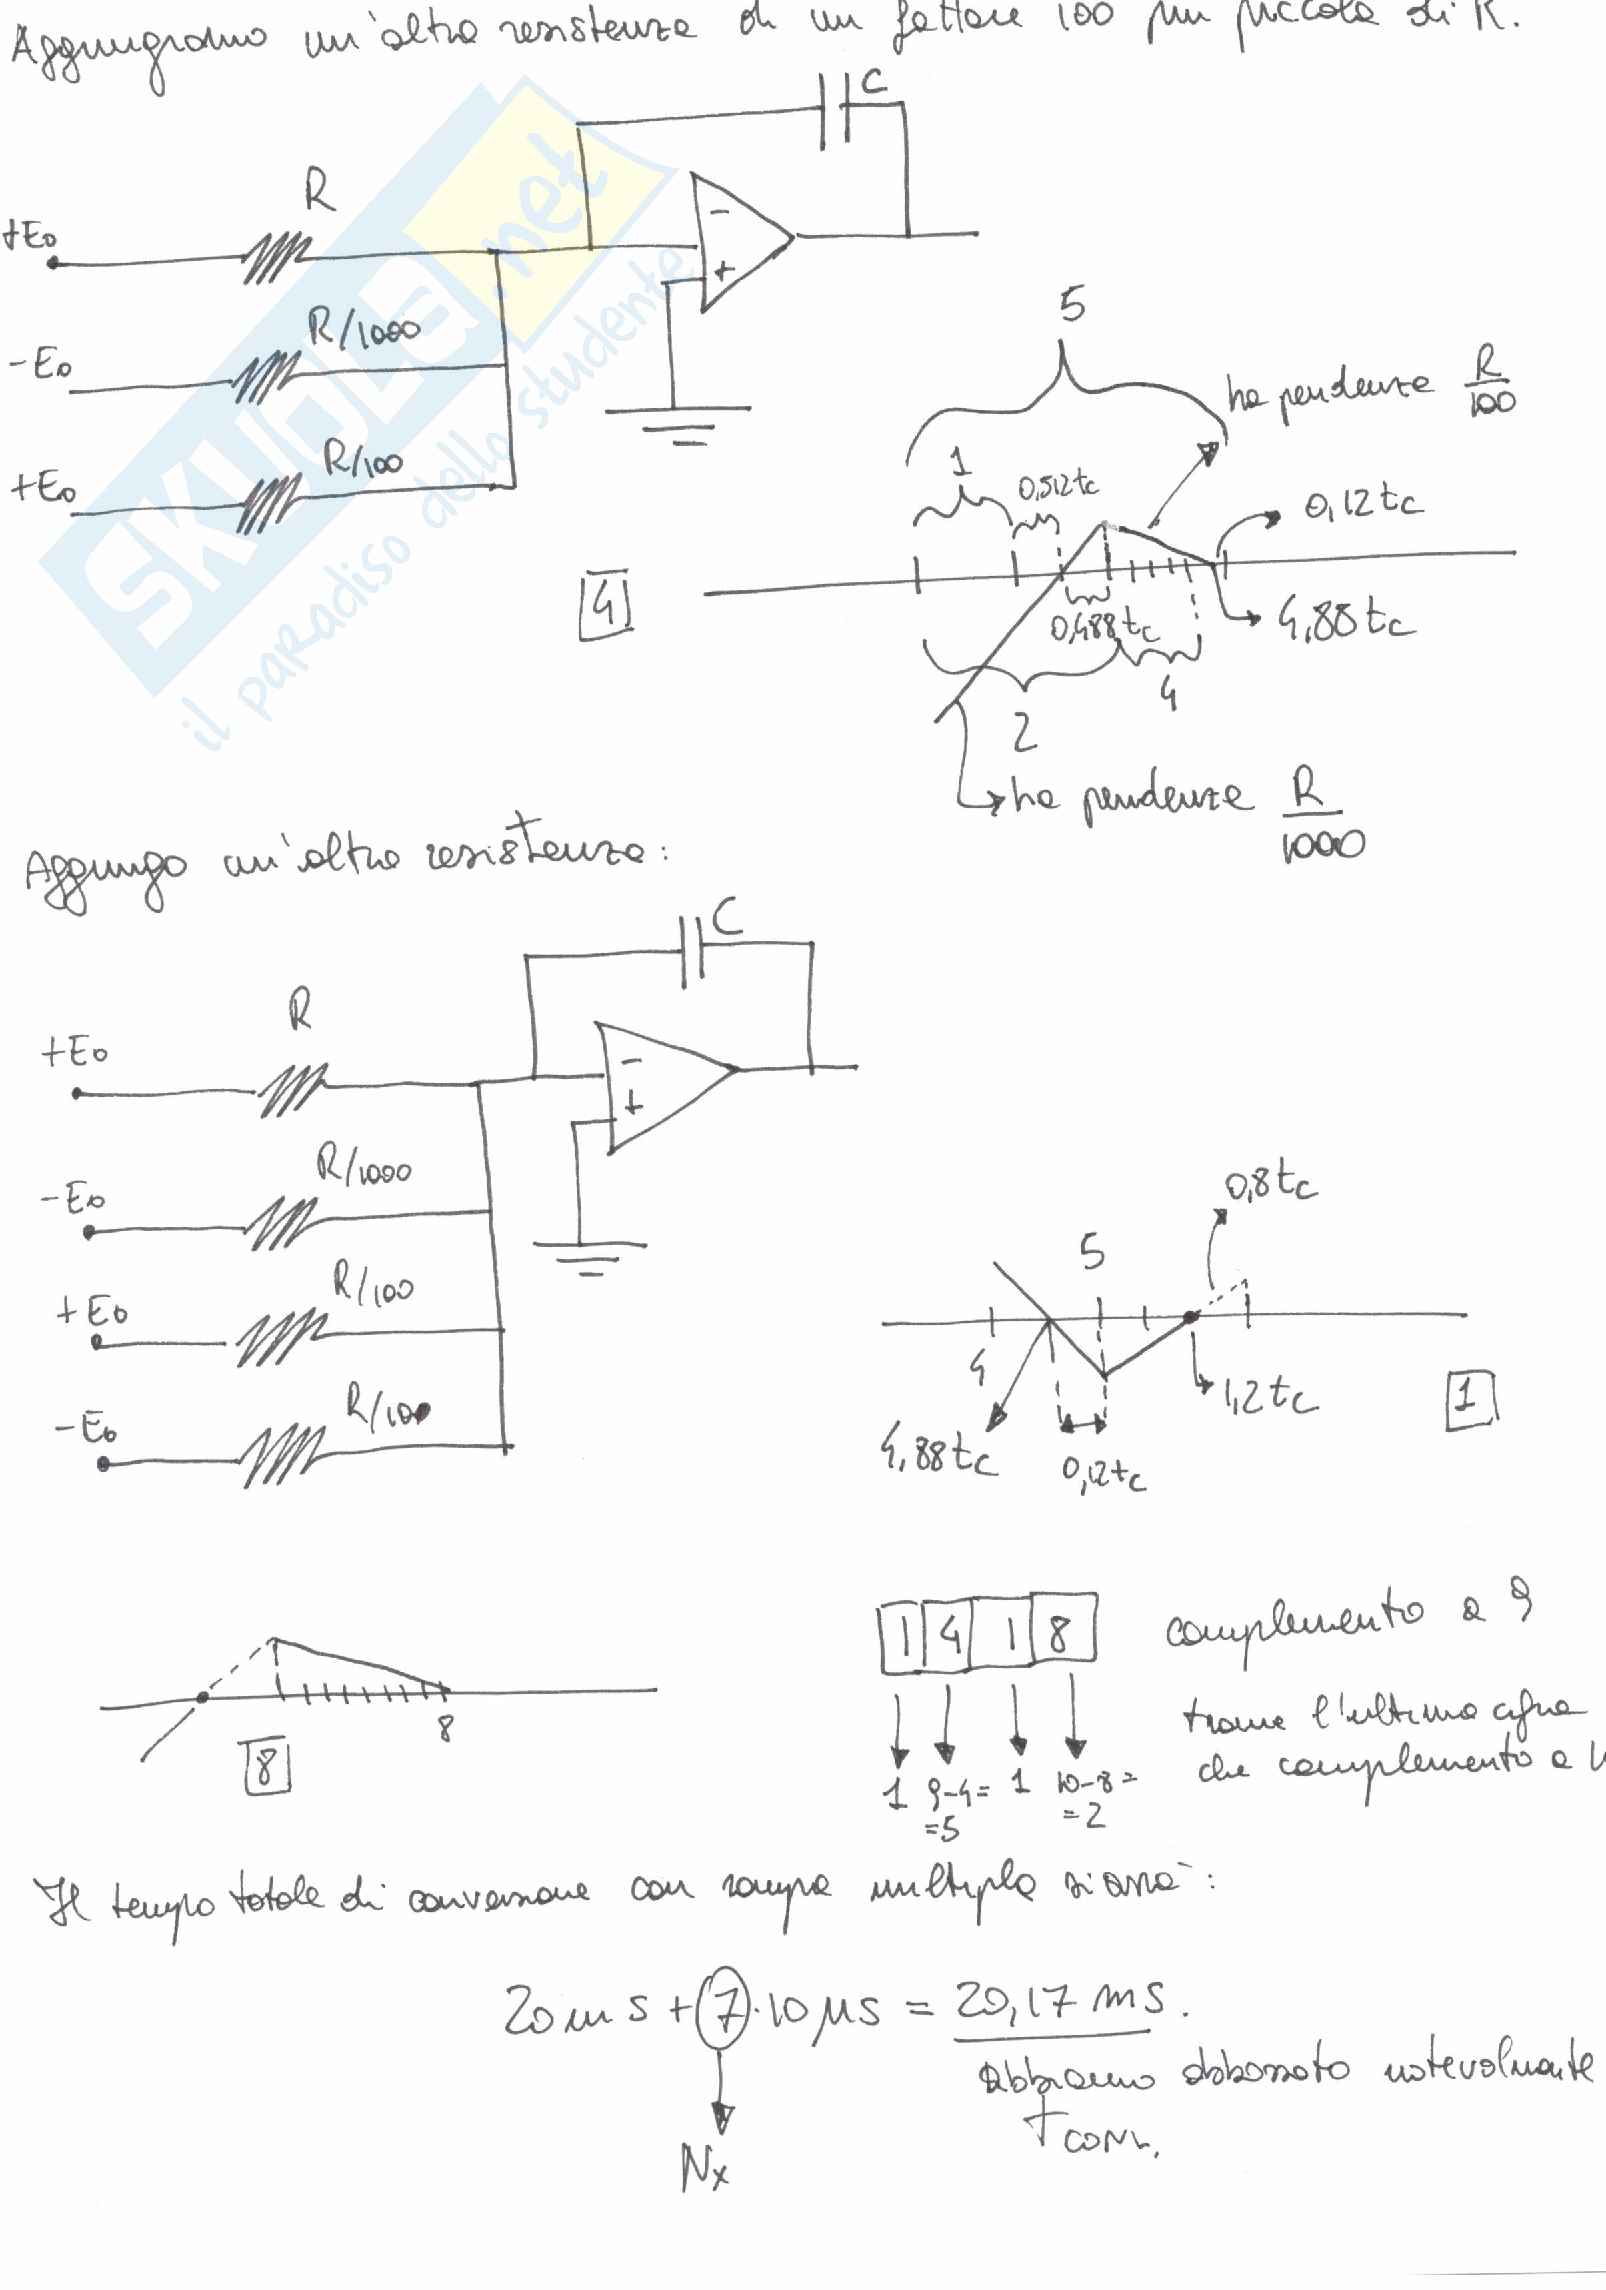 Aggiungiamo un'altra resistenza di un fattore 100 più piccola di R.
C
R
+E0
-
+
R/1000
-E0
R/100
+E0
5
ha pendenza R/100
1
0,512tc
0,12tc
4
0,488tc
4,88tc
2
4
ha pendenza R/1000
SKUOLA.net
il paradiso dello studente
Aggiungo un'altra resistenza:
C
R
+E0
-
+
R/1000
-E0
R/100
+E0
R/100
-E0
0,8tc
5
4
1,2tc
1
4,88tc
0,12tc
8
8
1 4 1 8 complemento a 9
tranne l'ultima cifra
che complemento a
1 9-4= 1 10-8=
=5 =2
Il tempo totale di conversione con rampa multipla sarà:
20ms + 7·10μs = 20,17ms.
abbiamo abbassato notevolmente
Tconv.
Nx